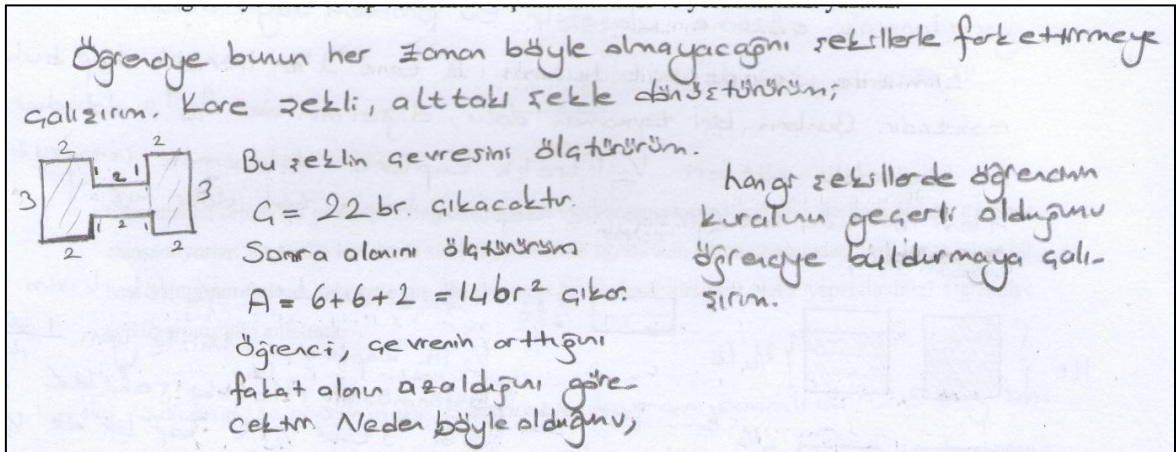 Öğrenciye bunun her zaman böyle olmayacağını şekillerle fark ettirmeye
çalışırım. Kare şekli, alttaki şekle dönüştürürüm;
2 2
1 2 1
3 3
1 2 1
2 2
Bu şeklin çevresini ölçtürürüm.
Ç = 22 br çıkacaktır.
Sonra alanını ölçtürürüm
A = 6+6+2 = 14 br² çıkar.
Öğrenci, çevrenin arttığını
fakat alanın azaldığını göre-
cektir. Neden böyle olduğunu,
hangi şekillerde öğrencinin
kuralının geçerli olduğunu
öğrenciye buldurmaya çalı-
şırım.